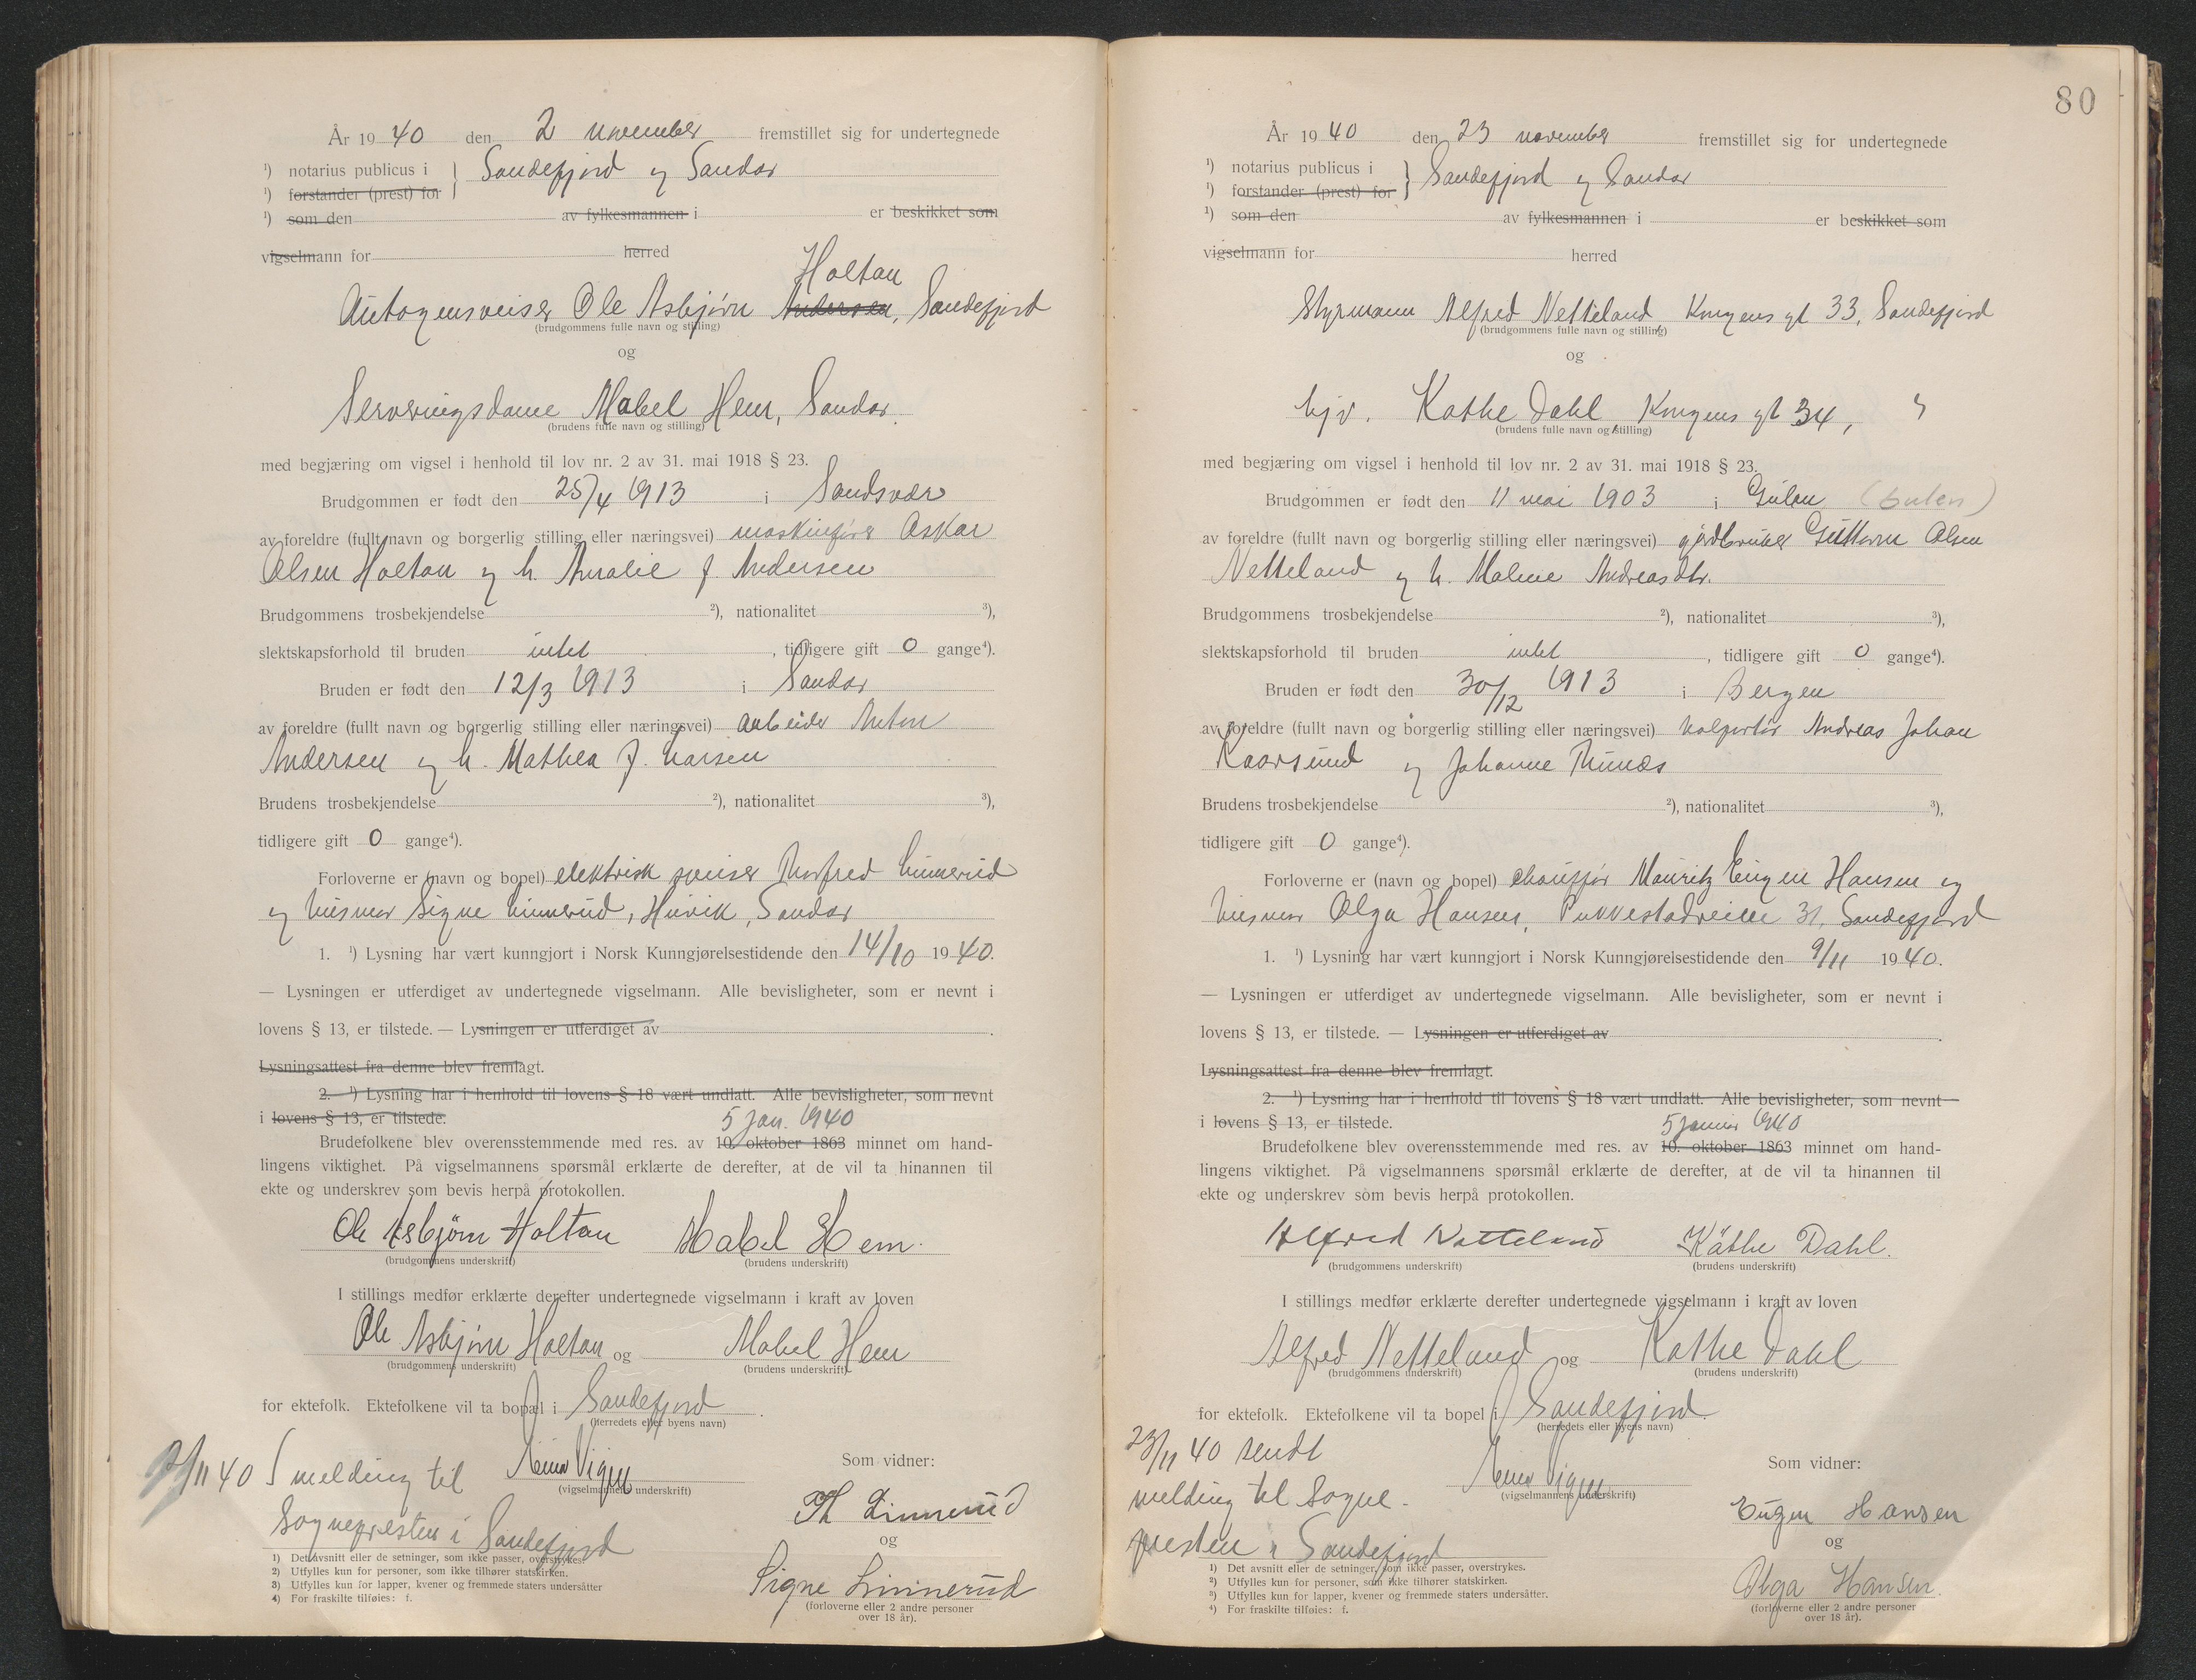 År 1940 den 2 november fremstillet sig for undertegnede
¹) notarius publicus i } Sandefjord og Sandar
¹) forstander (prest) for
¹) som den av fylkesmannen i er beskikket som
vigselmann for herred
Holtan
Autogensveiser Ole Asbjørn Andersen, Sandefjord
(brudgommens fulle navn og stilling)
og
Serveringsdame Mabel Hem, Sandar.
(brudens fulle navn og stilling)
med begjæring om vigsel i henhold til lov nr. 2 av 31. mai 1918 § 23.
Brudgommen er født den 25/4 1913 i Sandsvær
av foreldre (fullt navn og borgerlig stilling eller næringsvei) maskinfører Oskar
Olsen Holtan og h. Amalie f. Andersen
Brudgommens trosbekjendelse ²), nationalitet ³),
slektskapsforhold til bruden intet, tidligere gift 0 gange⁴).
Bruden er født den 12/3 1913 i Sandar
av foreldre (fullt navn og borgerlig stilling eller næringsvei) arbeider Anton
Andersen og h. Mathea f. Larsen
Brudens trosbekjendelse ²), nationalitet ³),
tidligere gift 0 gange⁴).
Forloverne er (navn og bopel) elektrisk sveiser Thorfred Linnerud
og husmor Signe Linnerud, Huvik, Sandar
1. ¹) Lysning har vært kunngjort i Norsk Kunngjørelsestidende den 14/10 1940.
— Lysningen er utferdiget av undertegnede vigselmann. Alle bevisligheter, som er nevnt i
lovens § 13, er tilstede. — Lysningen er utferdiget av .
Lysningsattest fra denne blev fremlagt.
2. ¹) Lysning har i henhold til lovens § 18 vært undlatt. Alle bevisligheter, som nevnt
i lovens § 13, er tilstede.
5 jan. 1940
Brudefolkene blev overensstemmende med res. av 10. oktober 1863 minnet om hand-
lingens viktighet. På vigselmannens spørsmål erklærte de derefter, at de vil ta hinannen til
ekte og underskrev som bevis herpå protokollen.
Ole Asbjörn Holtan Mabel Hem.
(brudgommens underskrift) (brudens underskrift)
I stillings medfør erklærte derefter undertegnede vigselmann i kraft av loven
Ole Asbjørn Holtan og Mabel Hem
(brudgommens underskrift) (brudens underskrift)
for ektefolk. Ektefolkene vil ta bopæl i Sandefjord.
(herredets eller byens navn)
/11 40 S melding til
Sognepresten i Sandefjord
Einar Vigen
(vigselmannens underskrift)
Som vidner:
Th Linnerud
og
Signe Linnerud
(forloverne eller 2 andre personer
over 18 år).
1) Det avsnitt eller de setninger, som ikke passer, overstrykes.
2) Utfylles kun for personer, som ikke tilhører statskirken.
3) Utfylles kun for lapper, kvener og fremmede staters undersåtter
4) For fraskilte tilføies: f.
80
År 1940 den 23 november fremstillet sig for undertegnede
¹) notarius publicus i } Sandefjord og Sandar
¹) forstander (prest) for
¹) som den av fylkesmannen i er beskikket som
vigselmann for herred
Styrmann Alfred Netteland Kongens gt 33, Sandefjord
(brudgommens fulle navn og stilling)
og
hjv. Kathe Dahl Kongens gt 34, "
(brudens fulle navn og stilling)
med begjæring om vigsel i henhold til lov nr. 2 av 31. mai 1918 § 23.
Brudgommen er født den 11 mai 1903 i Gulen (Gulen)
av foreldre (fullt navn og borgerlig stilling eller næringsvei) gårdbruker Guttorm Olsen
Netteland og h. Malene Andreasdtr.
Brudgommens trosbekjendelse ²), nationalitet ³),
slektskapsforhold til bruden intet, tidligere gift 0 gange⁴).
Bruden er født den 30/12 1913 i Bergen
av foreldre (fullt navn og borgerlig stilling eller næringsvei) kolportør Andreas Johan
Kaarsund og Johanne Thunæs
Brudens trosbekjendelse ²), nationalitet ³),
tidligere gift 0 gange⁴).
Forloverne er (navn og bopel) chauffør Mauritz Eugen Hansen og
husmor Olga Hansen, Pukkestadveien 31, Sandefjord
1. ¹) Lysning har vært kunngjort i Norsk Kunngjørelsestidende den 9/11 1940.
— Lysningen er utferdiget av undertegnede vigselmann. Alle bevisligheter, som er nevnt i
lovens § 13, er tilstede. — Lysningen er utferdiget av .
Lysningsattest fra denne blev fremlagt.
2. ¹) Lysning har i henhold til lovens § 18 vært undlatt. Alle bevisligheter, som nevnt
i lovens § 13, er tilstede.
5 januar 1940
Brudefolkene blev overensstemmende med res. av 10. oktober 1863 minnet om hand-
lingens viktighet. På vigselmannens spørsmål erklærte de derefter, at de vil ta hinannen til
ekte og underskrev som bevis herpå protokollen.
Alfred Netteland Käthe Dahl.
(brudgommens underskrift) (brudens underskrift)
I stillings medfør erklærte derefter undertegnede vigselmann i kraft av loven
Alfred Netteland og Kathe Dahl
(brudgommens underskrift) (brudens underskrift)
for ektefolk. Ektefolkene vil ta bopel i Sandefjord.
(herredets eller byens navn)
23/11 40 sendt
melding til Sogne-
presten i Sandefjord
Einar Vigen
(vigselmannens underskrift)
Som vidner:
Eugen Hansen
og
Olga Hansen.
(forloverne eller 2 andre personer
over 18 år).
¹) Det avsnitt eller de setninger, som ikke passer, overstrykes.
²) Utfylles kun for personer, som ikke tilhører statskirken.
³) Utfylles kun for lapper, kvener og fremmede staters undersåtter.
⁴) For fraskilte tilføies: f.